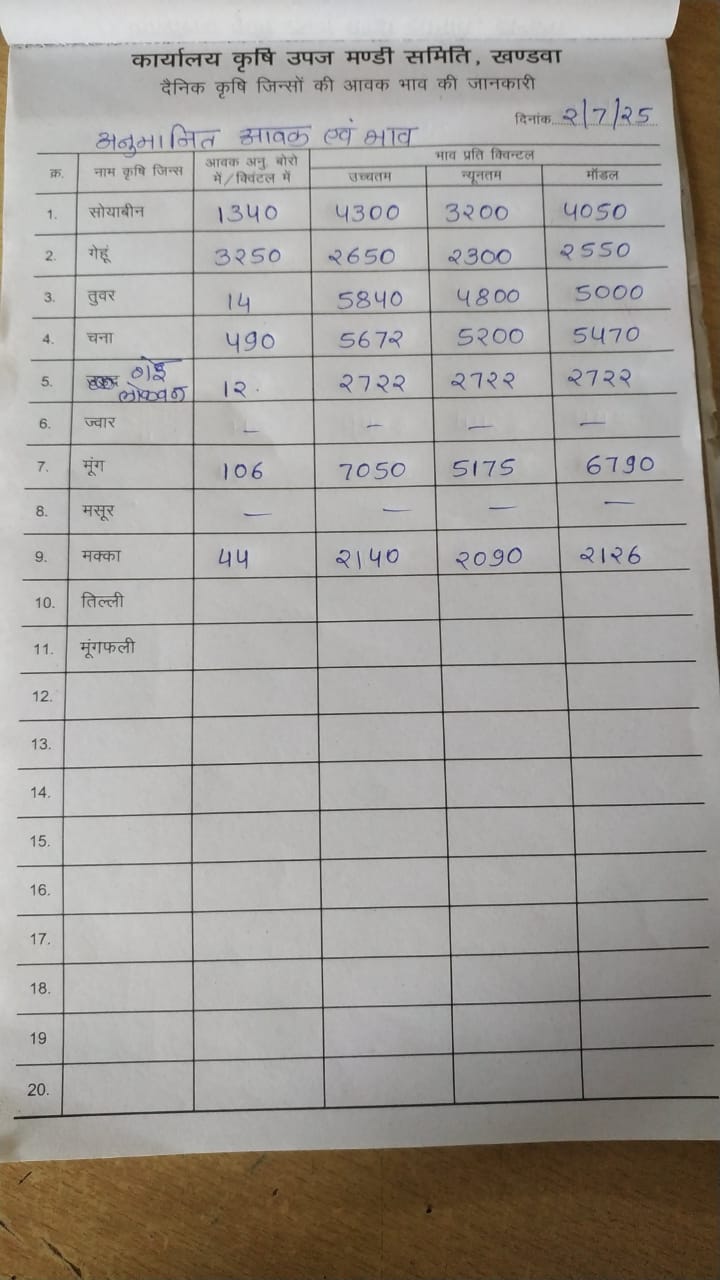 कार्यालय कृषि उपज मण्डी समिति, खण्डवा
दैनिक कृषि जिन्सों की आवक भाव की जानकारी
दिनांक २/7/२5
अनुमानित आवक एवं भाव
क्र. नाम कृषि जिन्स आवक अनु. बोरो में/क्विंटल में भाव प्रति क्विन्टल
उच्चतम न्यूनतम मॉडल
1. सोयाबीन 1340 4300 3२00 4050
2. गेहूं 3२50 २650 २300 २550
3. तुवर 14 5840 4800 5000
4. चना 490 567२ 5२00 5470
5. गेहूं लोकवन 1२. २7२२ २7२२ २7२२
6. ज्वार – – – –
7. मूंग 106 7050 5175 6790
8. मसूर – – – –
9. मक्का 44 २140 २090 २1२6
10. तिल्ली
11. मूंगफली
12.
13.
14.
15.
16.
17.
18.
19
20.